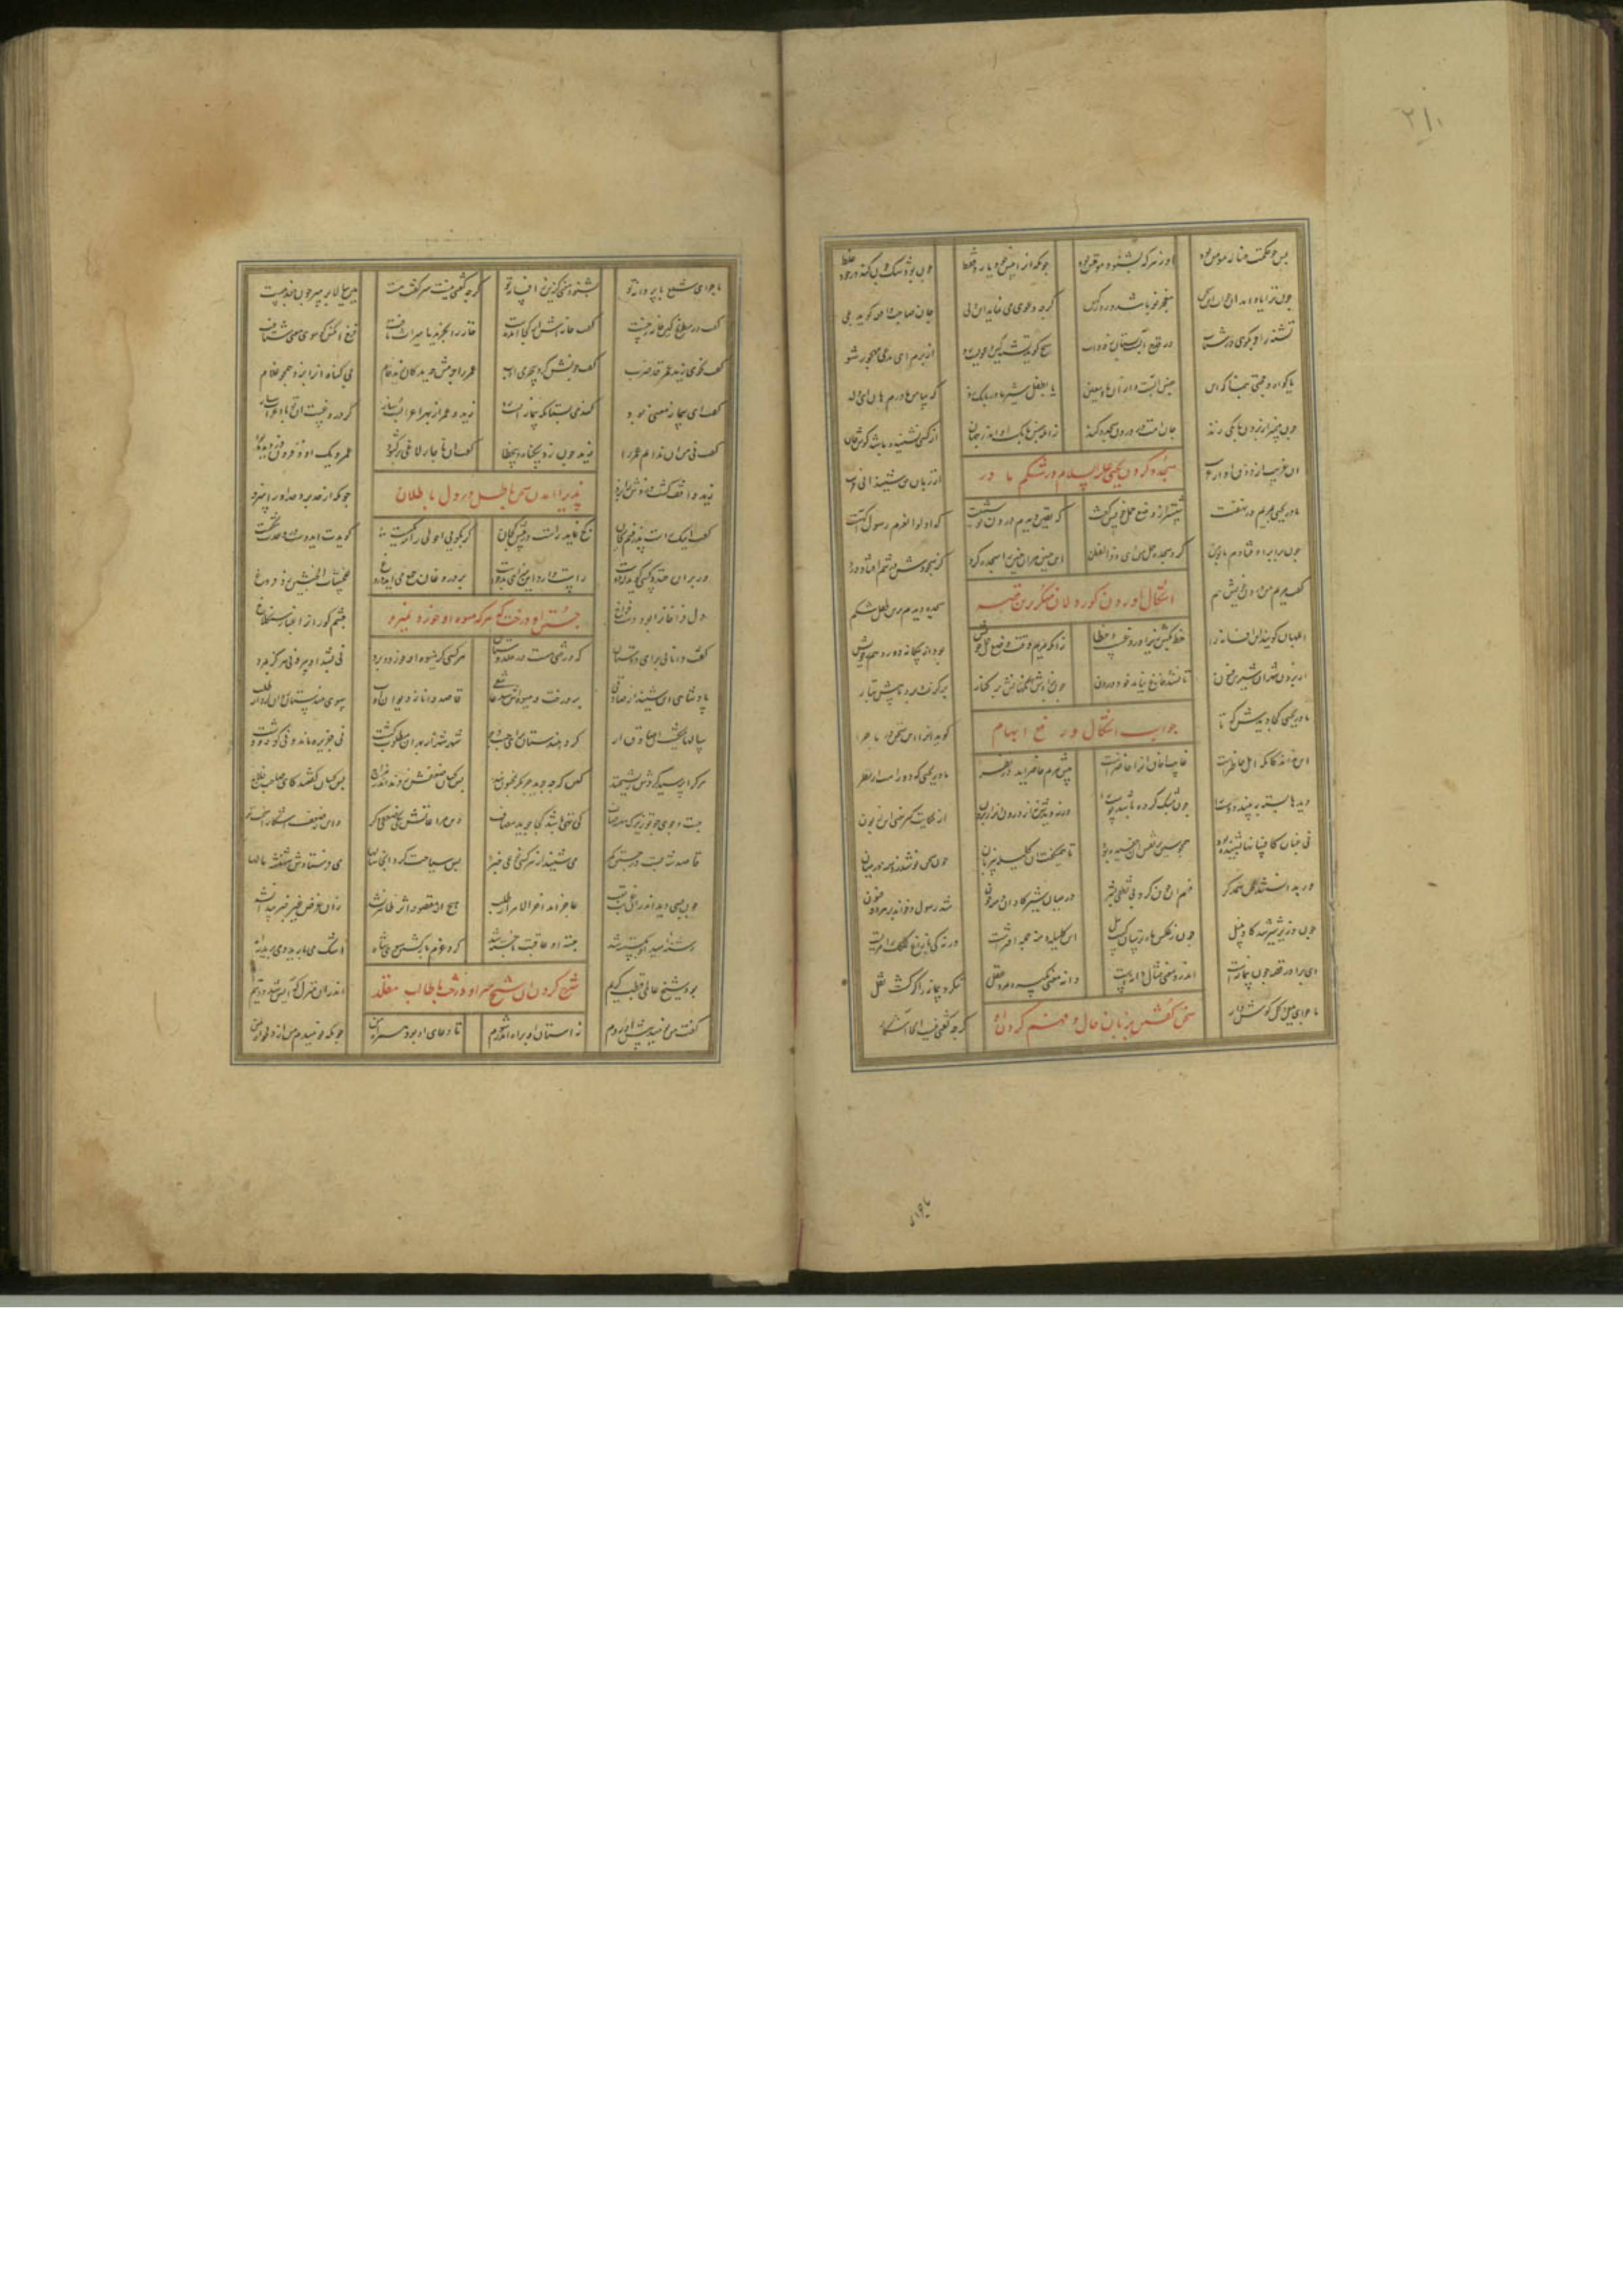 ۲۱۰
پس چو حکمت ضاله مومن بود  آن ز هرکه بشنود موقن بود  چونکه از پیش خود یابد فقط  چون بود شک چون کند خود را غلط
چون ترا یاد آمد آن خواب این سخن  معجز نو باشد و زر کهن  گرچه دعوی می نماید این ولی  جان صاحب واقعه گوید بلی
تشنه را چو بگویی تو شتاب  در قدح آبست بستان زود آب  هیچ گوید تشنه کین دعویست رو  از برم ای مدعی مهجور شو
یا گواه و حجتی بنما که این  جنس آبست و از آن ماء معین  یا بطفل شیر مادر بانگ زد  که بیا من مادرم هان ای ولد
چون پیمبر از برون بانگی زند  جان امت در درون سجده کند  زانکه جنس بانگ او اندر جهان  از کسی نشنیده باشد گوش جان
آن غریب از ذوق آواز غریب  از زبان حق شنید انی قریب
سجده کردن یحیی علیه السلام در شکم مادر
مادر یحیی بمریم در نهفت  پیشتر از وضع حمل خویش گفت  که یقین دیدم درون تو شهیست  که اولوا العزم و رسول آگهیست
چون برابر اوفتادم با تو من  کرد سجده حمل من ای ذوالفطن  این جنین مر آن جنین را سجده کرد  کز سجودش در تنم افتاد درد
گفت مریم من درون خویش هم  سجده دیدم ازین طفل شکم
اشکال آوردن کوردلان منکر برین قصه
ابلهان گویند این افسانه را  خط بکش زیرا دروغست و خطا  زانکه مریم وقت وضع حمل خویش  بود از بیگانه دور و هم ز خویش
از برون شهر آن شیرین فسون  تا نشد فارغ نیامد خود درون  چون بزادش آنگهانش بر کنار  برگرفت و برد تا پیش تبار
مادر یحیی کجا دیدش که تا  گوید او را این سخن در ماجرا
جواب اشکال و رفع ابهام
این بداند کانکه اهل خاطرست  غایب آفاق او را حاضرست  پیش مریم حاضر آید در نظر  مادر یحیی که دورست از بصر
دیدها بسته ببیند دوست را  چون مشبک کرده باشد پوست را  ور ندیدش نز برون نز اندرون  از حکایت گیر معنی ای زبون
نی چنان کافسانها بشنیده بود  همچو شین بر نقش آن چفسیده بود  تا همی گفت آن کلیله بی زبان  چون سخن نوشد ز دمنه بی بیان
ور بدانستند لحن همدگر  فهم آن چون کرد بی نطقی بشر  در میان شیر و گاو آن دمنه چون  شد رسول و خواند بر هر دو فسون
چون وزیر شیر شد گاو نبیل  چون ز عکس ماه ترسان گشت پیل  این کلیله و دمنه جمله افتراست  ورنه کی با زاغ لکلک را مریست
ای برادر قصه چون پیمانه است  اندرو معنی مثال دانه است  دانه معنی بگیرد مرد عقل  ننگرد پیمانه را گر گشت نقل
ماجرای بلبل و گل گوش دار  گرچه گفتی نیست آنجا آشکار
سخن گفتن بزبان حال و فهم کردن آن
ماجرای
ماجرای شمع با پروانه تو  بشنو و معنی گزین ز افسانه تو  گرچه گفتی نیست سر گفت هست  هین ببالا پر مپر چون جغد پست
گفت در شطرنج کین خانه رخست  گفت خانه از کجاش آمد بدست  خانه را بخرید یا میراث یافت  فرخ آنکس کو سوی معنی شتافت
گفت نحوی زید عمرو قد ضرب  گفت چونش کرد بی جرمی ادب  عمرو را جرمش چه بد کان زید خام  بی گناه او را بزد همچو غلام
گفت این پیمانه معنی بود  گندمی بستان که پیمانه است رد  زید و عمرو از بهر اعرابست و ساز  گر دروغست آن تو با اعراب ساز
گفت نی من آن ندانم عمرو را  زید چون زد بی گناه و بی خطا  گفت از ناچار لاغی برگشود  عمرو یک واو فزون دزدیده بود
زید واقف گشت دزدش را بزد  چونکه از حد برد او را حد سزد
پذیرا آمدن سخن باطل در دل باطلان
گفت اینک راست پذرفتم بجان  کج نماید راست در پیش کجان  گر بگویی احولی را مه یکیست  گویدت این دوست و در وحدت شکیست
ور بران خندد کسی گوید دوست  راست دارد این سزای بدخوست  بر دروغان جمع می آید دروغ  للخبیثات الخبیثین زد فروغ
دل فراخان را بود دست فراخ  چشم کوران را عثار سنگلاخ
جستن آن درخت که هرکه میوه او خورد نمیرد
گفت دانایی برای داستان  که درختی هست در هندوستان  هر کسی کز میوه او خورد و برد  نی شود او پیر و نی هرگز بمرد
پادشاهی این شنید از صادقی  بر درخت و میوه اش شد عاشقی  قاصدی دانا ز دیوان ادب  سوی هندستان روان کرد از طلب
سالها می گشت آن قاصد ازو  گرد هندستان برای جست و جو  شهر شهر از بهر این مطلوب گشت  نی جزیره ماند و نی کوه و نی دشت
هرکرا پرسید کردش ریشخند  کین که جوید جز مگر مجنون بند  بس کسان صفعش زدند اندر مزاح  بس کسان گفتند کای صاحب فلاح
جست و جوی چون تو زیرک سینه صاف  کی تهی باشد کجا باشد گزاف  وین مراعاتش یکی صفعی دگر  وین ز صفع آشکارا سخت تر
قاصد شه بسته در جستن کمر  می شنید از هر کسی نوعی خبر  بس سیاحت کرد آنجا سالها  می فرستادش شهنشه مالها
چون بسی دید اندر آن غربت تعب  عاجز آمد آخر الامر از طلب  هیچ از مقصود اثر پیدا نشد  زان غرض غیر خبر پیدا نشد
رشته امید او بگسسته شد  جسته او عاقبت ناجسته شد  کرد عزم بازگشتن سوی شاه  اشک می بارید و می برید راه
بود شیخی عالمی قطبی کریم  اندر آن منزل که آیس شد ندیم
شرح کردن آن شیخ سر آن درخت با طالب مقلد
گفت من نومید پیش او روم  ز آستان او براه اندر شوم  تا دعای او بود همراه من  چونکه نومیدم من از دلخواه من